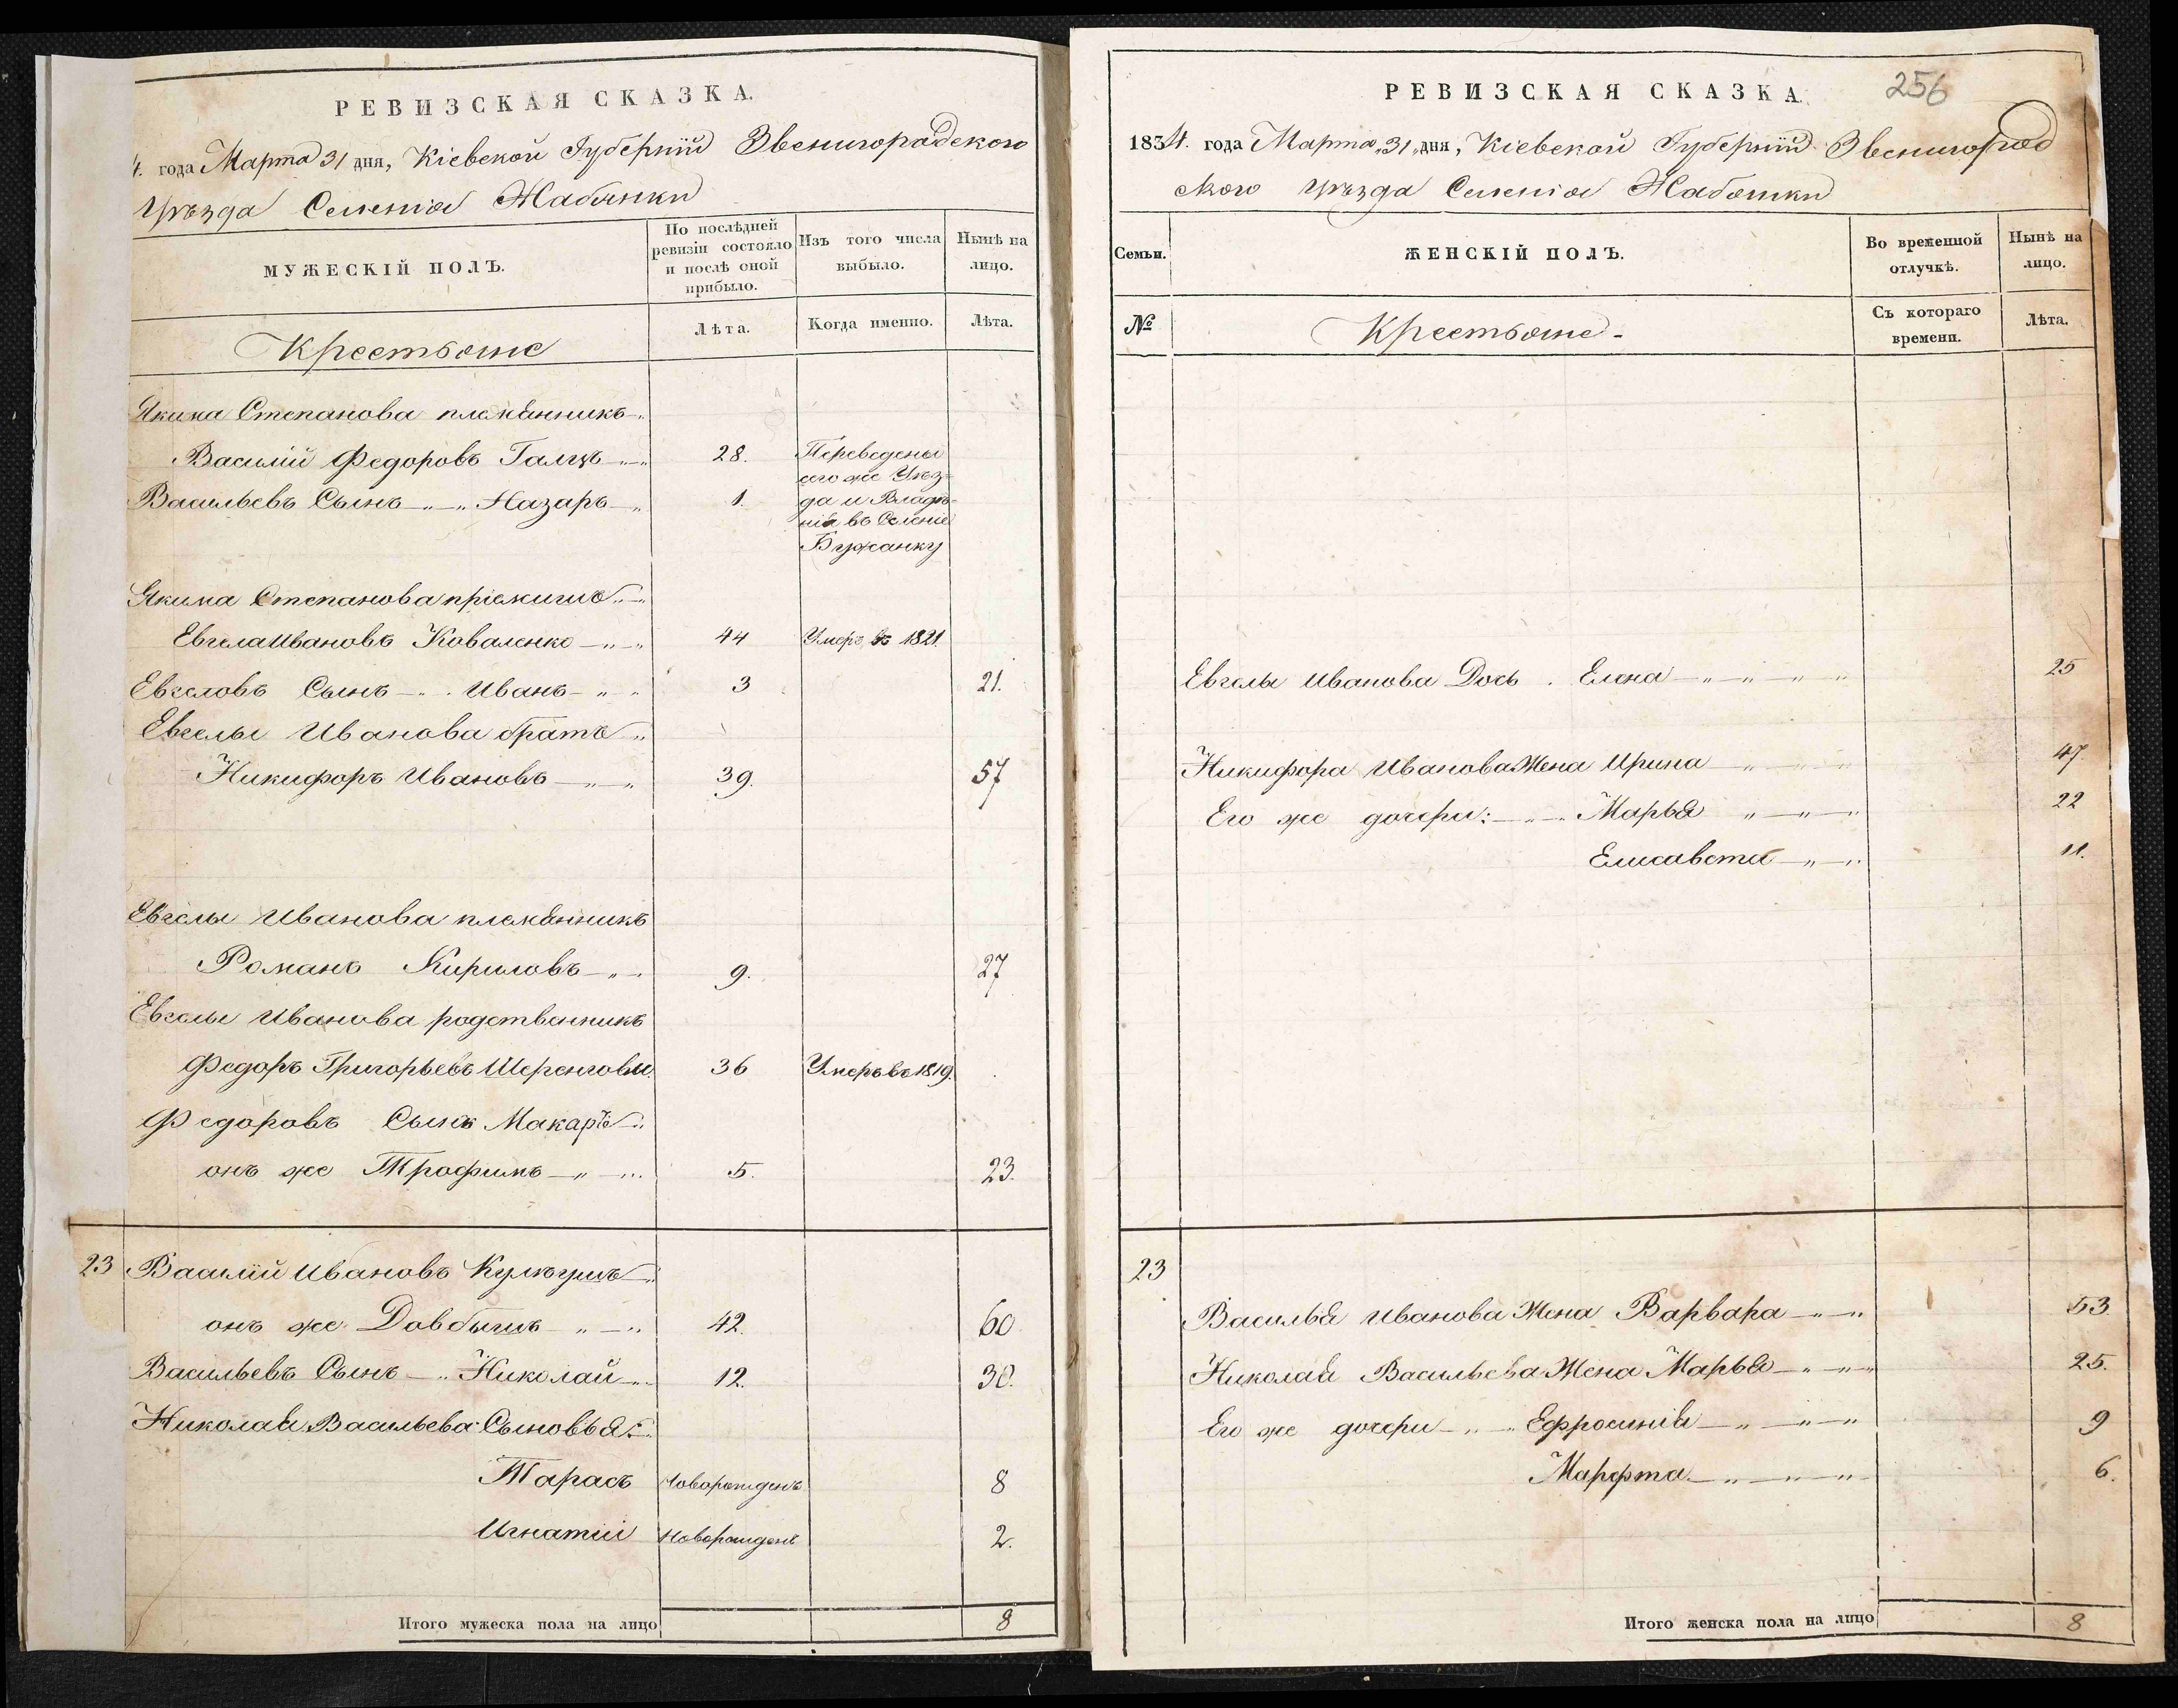 РЕВИЗСКАЯ СКАЗКА.
4. года Марта 31 дня, Кіевской Губерніи Звенигородского
Уѣзда Селенія Жабянки
МУЖЕСКІЙ ПОЛЪ.
По послѣдней ревизіи состояло и послѣ оной прибыло.
Изъ того числа выбыло.
Нынѣ на лицо.
Крестьяне
Лѣта.
Когда именно.
Лѣта.
Якима Степанова племянникъ
Василій Федоровъ 28. Переведены
сего же Уѣз=
Васильевъ Сынъ Назаръ 1. да и Владѣ=
нія въ Селеніе
Бужанку
Якима Степанова пріемышъ
Евгела Ивановъ Коваленко 44 Умеръ въ 1821.
Евгеловъ Сынъ Иванъ 3 21.
Евгелы Иванова братъ
Никифоръ Ивановъ 39. 57
Евгелы Иванова племянникъ
Романъ Кириловъ 9. 27
Евгелы Иванова родственникъ
Федоръ Григорьевъ 36 Умеръ въ 1819.
Федоровъ Сынъ Макаръ
онъ же Трофимъ 5. 23.
23 Василій Ивановъ
онъ же Довбышъ 42. 60
Васильевъ Сынъ Николай 12. 30.
Николая Васильева Сыновья:
Тарасъ Новорожденъ 8
Игнатій Новорожденъ 2.
Итого мужеска пола на лицо 8
РЕВИЗСКАЯ СКАЗКА.
256
1834. года Марта „31„ дня, Кіевской Губерніи Звенигород
ского Уѣзда Селенія Жабянки
Семьи.
ЖЕНСКІЙ ПОЛЪ.
Во временной отлучкѣ.
Нынѣ на лицо.
№
Крестьяне
Съ котораго времени.
Лѣта.
Евгелы Иванова Дочь Елена 25
Никифора Иванова Жена Ирина 47
Его же дочери: Марья 22
Елисавета 11.
23
Василья Иванова Жена Варвара 53
Николая Васильева Жена Марья 25.
Его же дочери Ефросинія 9
Марфта 6.
Итого женска пола на лицо 8